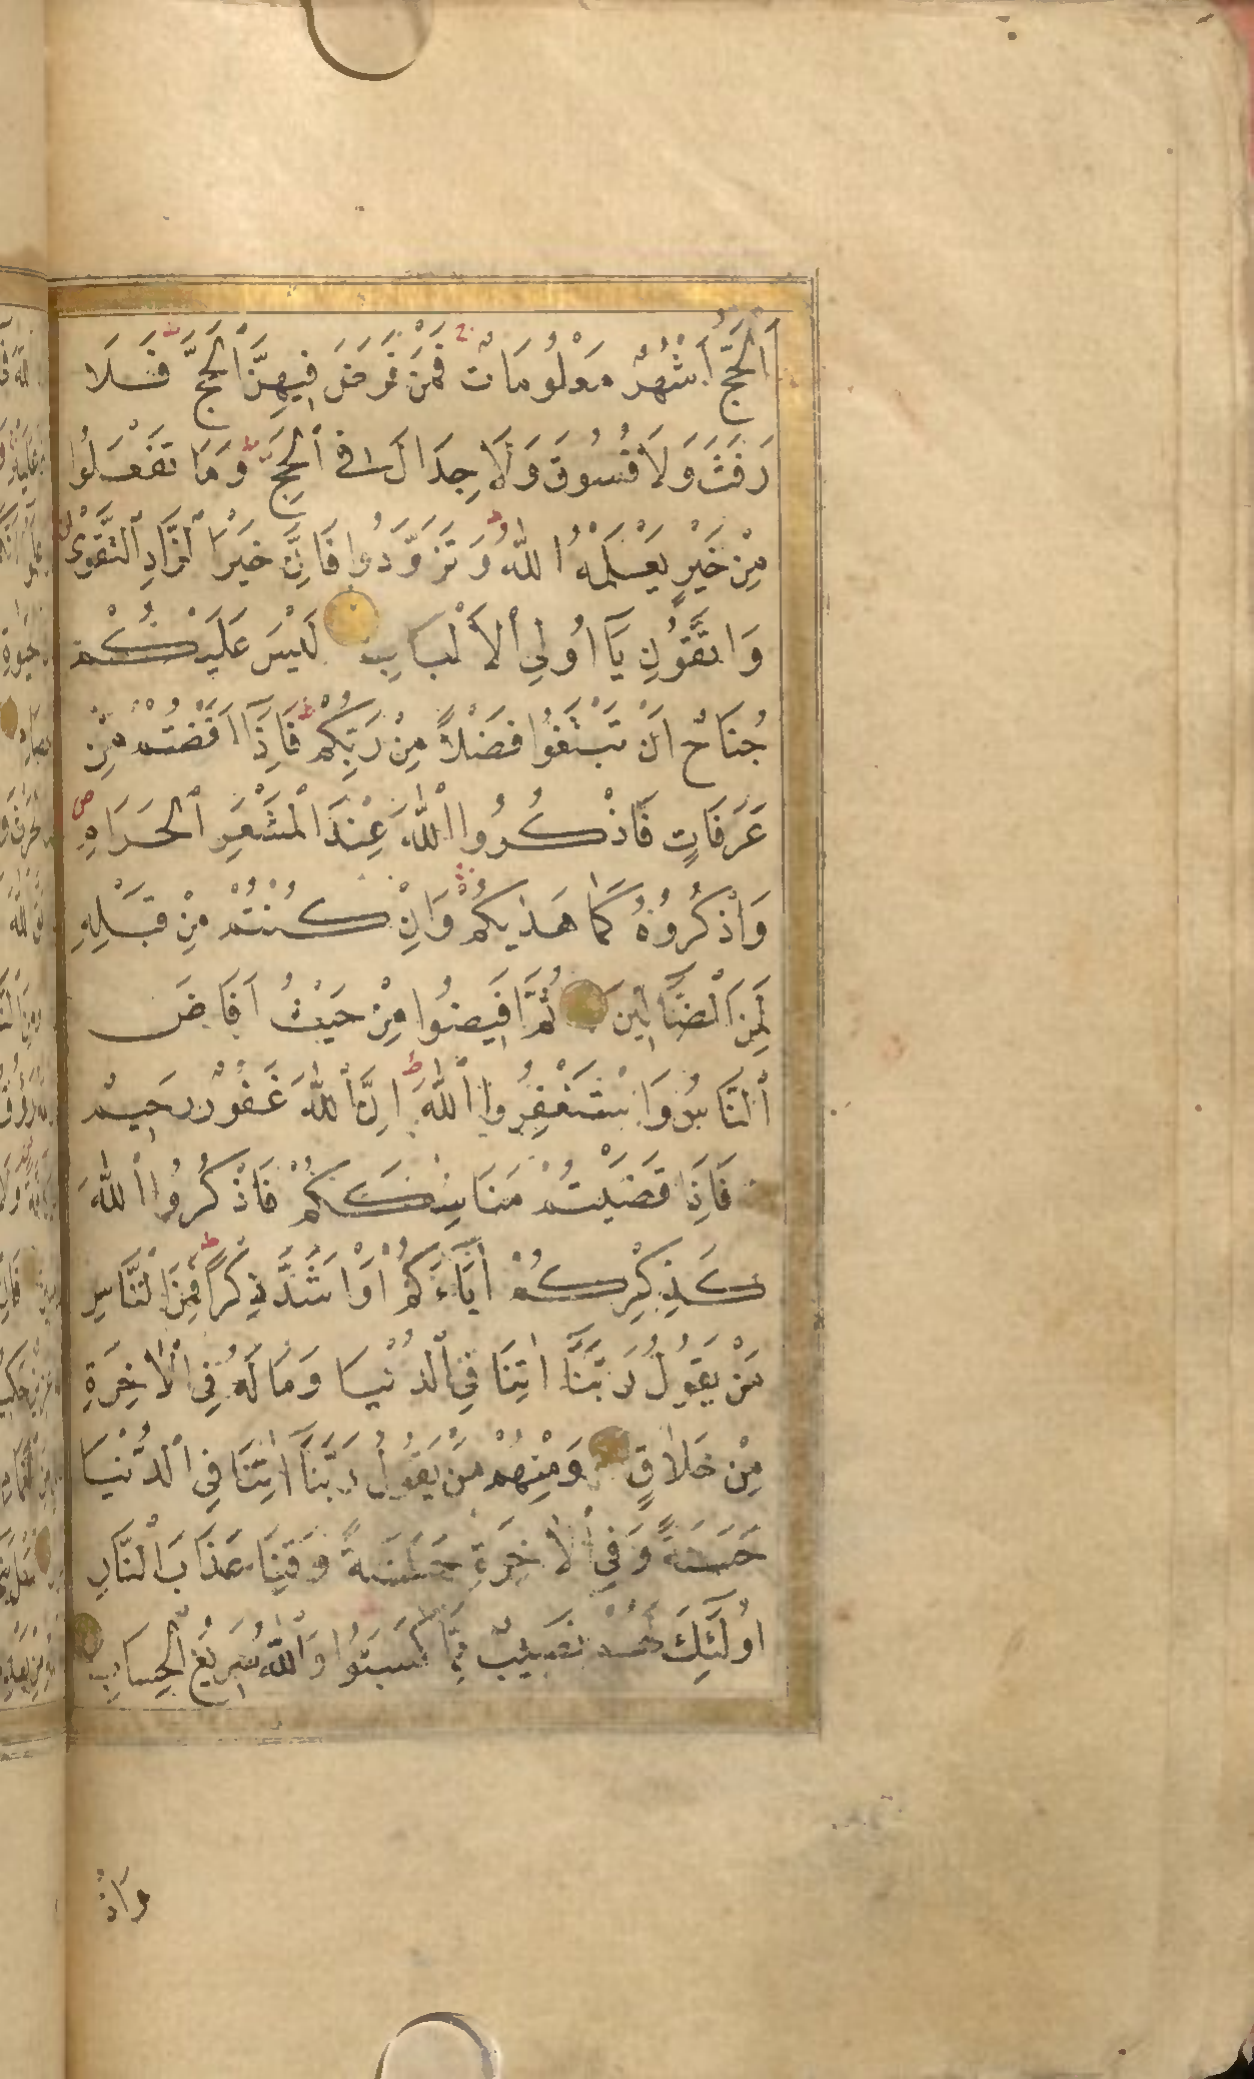 اَلْحَجُّ اَشْهُرٌ مَعْلُومَاتٌ فَمَنْ فَرَضَ فِيهِنَّ الْحَجَّ فَلَا
رَفَثَ وَلَا فُسُوقَ وَلَا جِدَالَ فِي الْحَجِّ وَمَا تَفْعَلُوا
مِنْ خَيْرٍ يَعْلَمْهُ اللّٰهُ وَتَزَوَّدُوا فَاِنَّ خَيْرَ الزَّادِ التَّقْوٰى
وَاتَّقُونِ يَا اُولِي الْاَلْبَابِ لَيْسَ عَلَيْكُمْ
جُنَاحٌ اَنْ تَبْتَغُوا فَضْلًا مِنْ رَبِّكُمْ فَاِذَا اَفَضْتُمْ مِنْ
عَرَفَاتٍ فَاذْكُرُوا اللّٰهَ عِنْدَ الْمَشْعَرِ الْحَرَامِ
وَاذْكُرُوهُ كَمَا هَدٰيكُمْ وَاِنْ كُنْتُمْ مِنْ قَبْلِهِ
لَمِنَ الضَّالِّينَ ثُمَّ اَفِيضُوا مِنْ حَيْثُ اَفَاضَ
النَّاسُ وَاسْتَغْفِرُوا اللّٰهَ اِنَّ اللّٰهَ غَفُورٌ رَحِيمٌ
فَاِذَا قَضَيْتُمْ مَنَاسِكَكُمْ فَاذْكُرُوا اللّٰهَ
كَذِكْرِكُمْ اٰبَاءَكُمْ اَوْ اَشَدَّ ذِكْرًا فَمِنَ النَّاسِ
مَنْ يَقُولُ رَبَّنَا اٰتِنَا فِي الدُّنْيَا وَمَا لَهُ فِي الْاٰخِرَةِ
مِنْ خَلَاقٍ وَمِنْهُمْ مَنْ يَقُولُ رَبَّنَا اٰتِنَا فِي الدُّنْيَا
حَسَنَةً وَفِي الْاٰخِرَةِ حَسَنَةً وَقِنَا عَذَابَ النَّارِ
اُولٰئِكَ لَهُمْ نَصِيبٌ مِمَّا كَسَبُوا وَاللّٰهُ سَرِيعُ الْحِسَابِ
وَاذْ